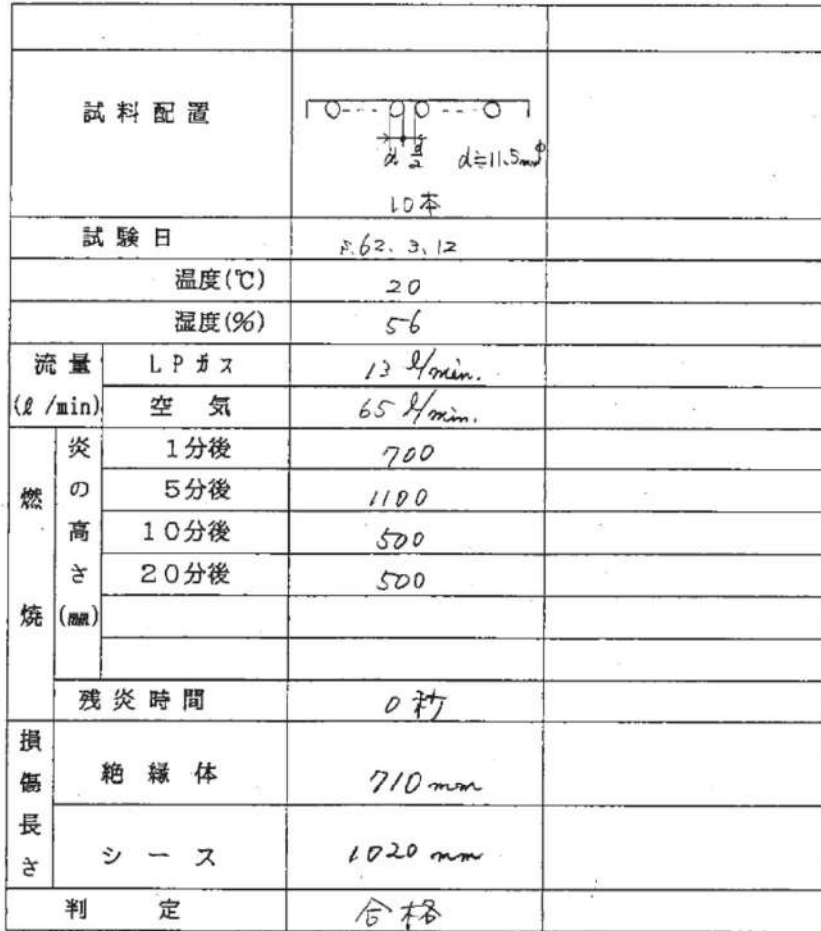 試料配置
d d/2 d≒11.5mmφ
10本
試験日 S.62.3.12
温度(℃) 20
湿度(%) 56
流量 LPガス 13 ℓ/min.
(ℓ/min) 空気 65 ℓ/min.
燃焼 炎の高さ(㎜) 1分後 700
5分後 1100
10分後 500
20分後 500
残炎時間 0秒
損傷長さ 絶縁体 710mm
シース 1020 mm
判定 合格